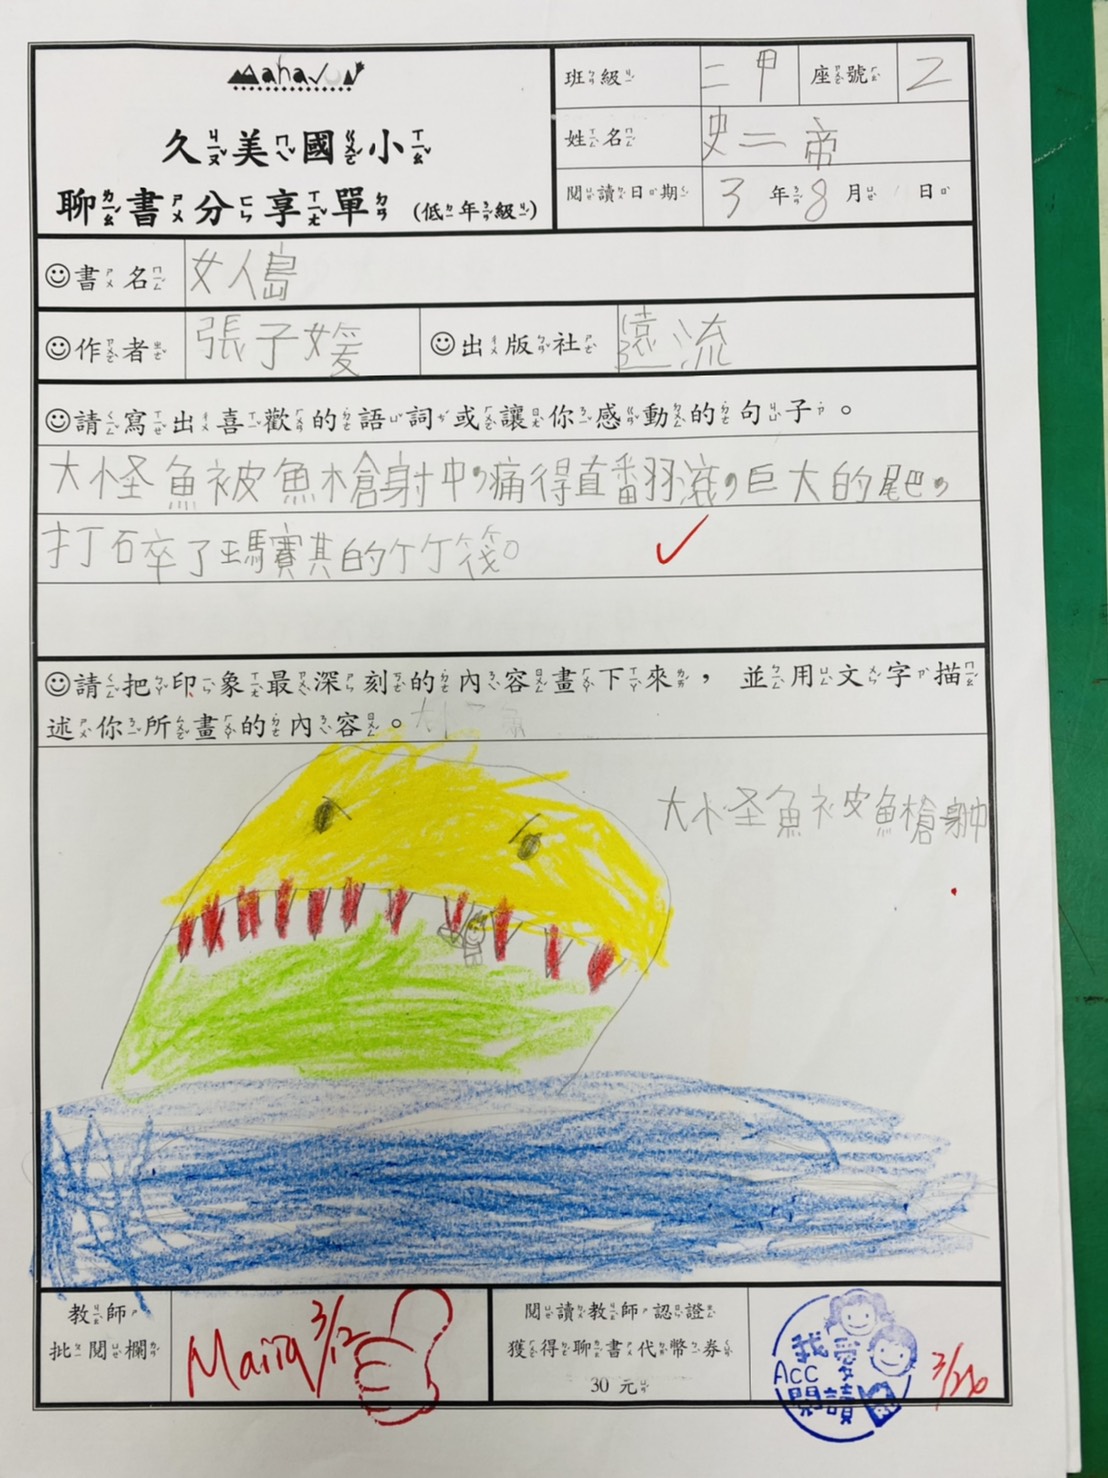 Mahavun
久美國小
聊書分享單 (低年級)
班級 二甲 座號 2
姓名 史二帝
閱讀日期 3年8月 日
書名 女人島
作者 張子媛 出版社 遠流
請寫出喜歡的語詞或讓你感動的句子。
大怪魚被魚槍射中,痛得直番羽滾,巨大的尾巴,
打石卒了瑪賽其的竹筏。
請把印象最深刻的內容畫下來,並用文字描
述你所畫的內容。
大怪魚被魚槍射中
教師 批閱欄
3/12
閱讀教師認證 獲得聊書代幣券 30元
我愛閱讀
Acc
3/26